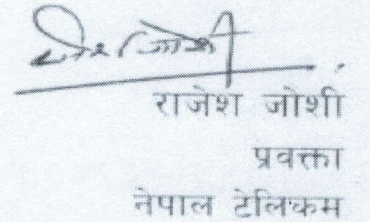 राजेश जोशी
प्रवक्ता
नेपाल टेलिकम